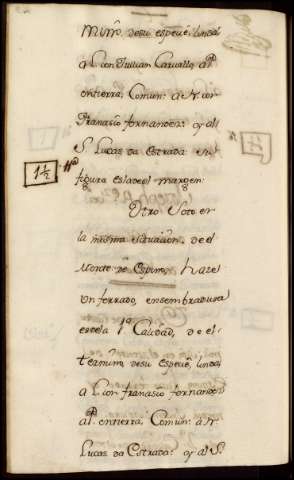 mino, desu especie, linda
a L. con Julian Carvallo, al P.
entierra, Comun: a N. con
franasio fernandez: y al
S. Lucas da Estrada: su
figura es la de el margen:
1½
Otro Soto en
la misma situacion, de el
Monte de Espino, haze
Un ferrado, ensembradura
es de la 1ª Calidad, de el
termino, desu especie, linda
a L. con franasio fernandez
al P. en tierra, Comun: a N.
Lucas da Estrada: y al S.